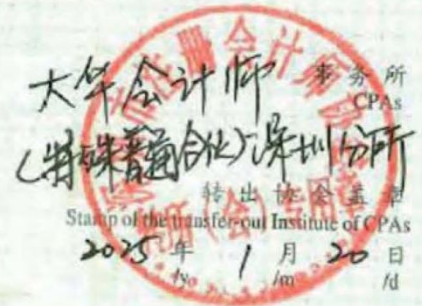 大华会计师 事务所
CPAs
(特殊普通合伙)深圳分所
转出协会盖章
Stamp of the transfer-out Institute of CPAs
2025 年 1 月 20 日
/y /m /d